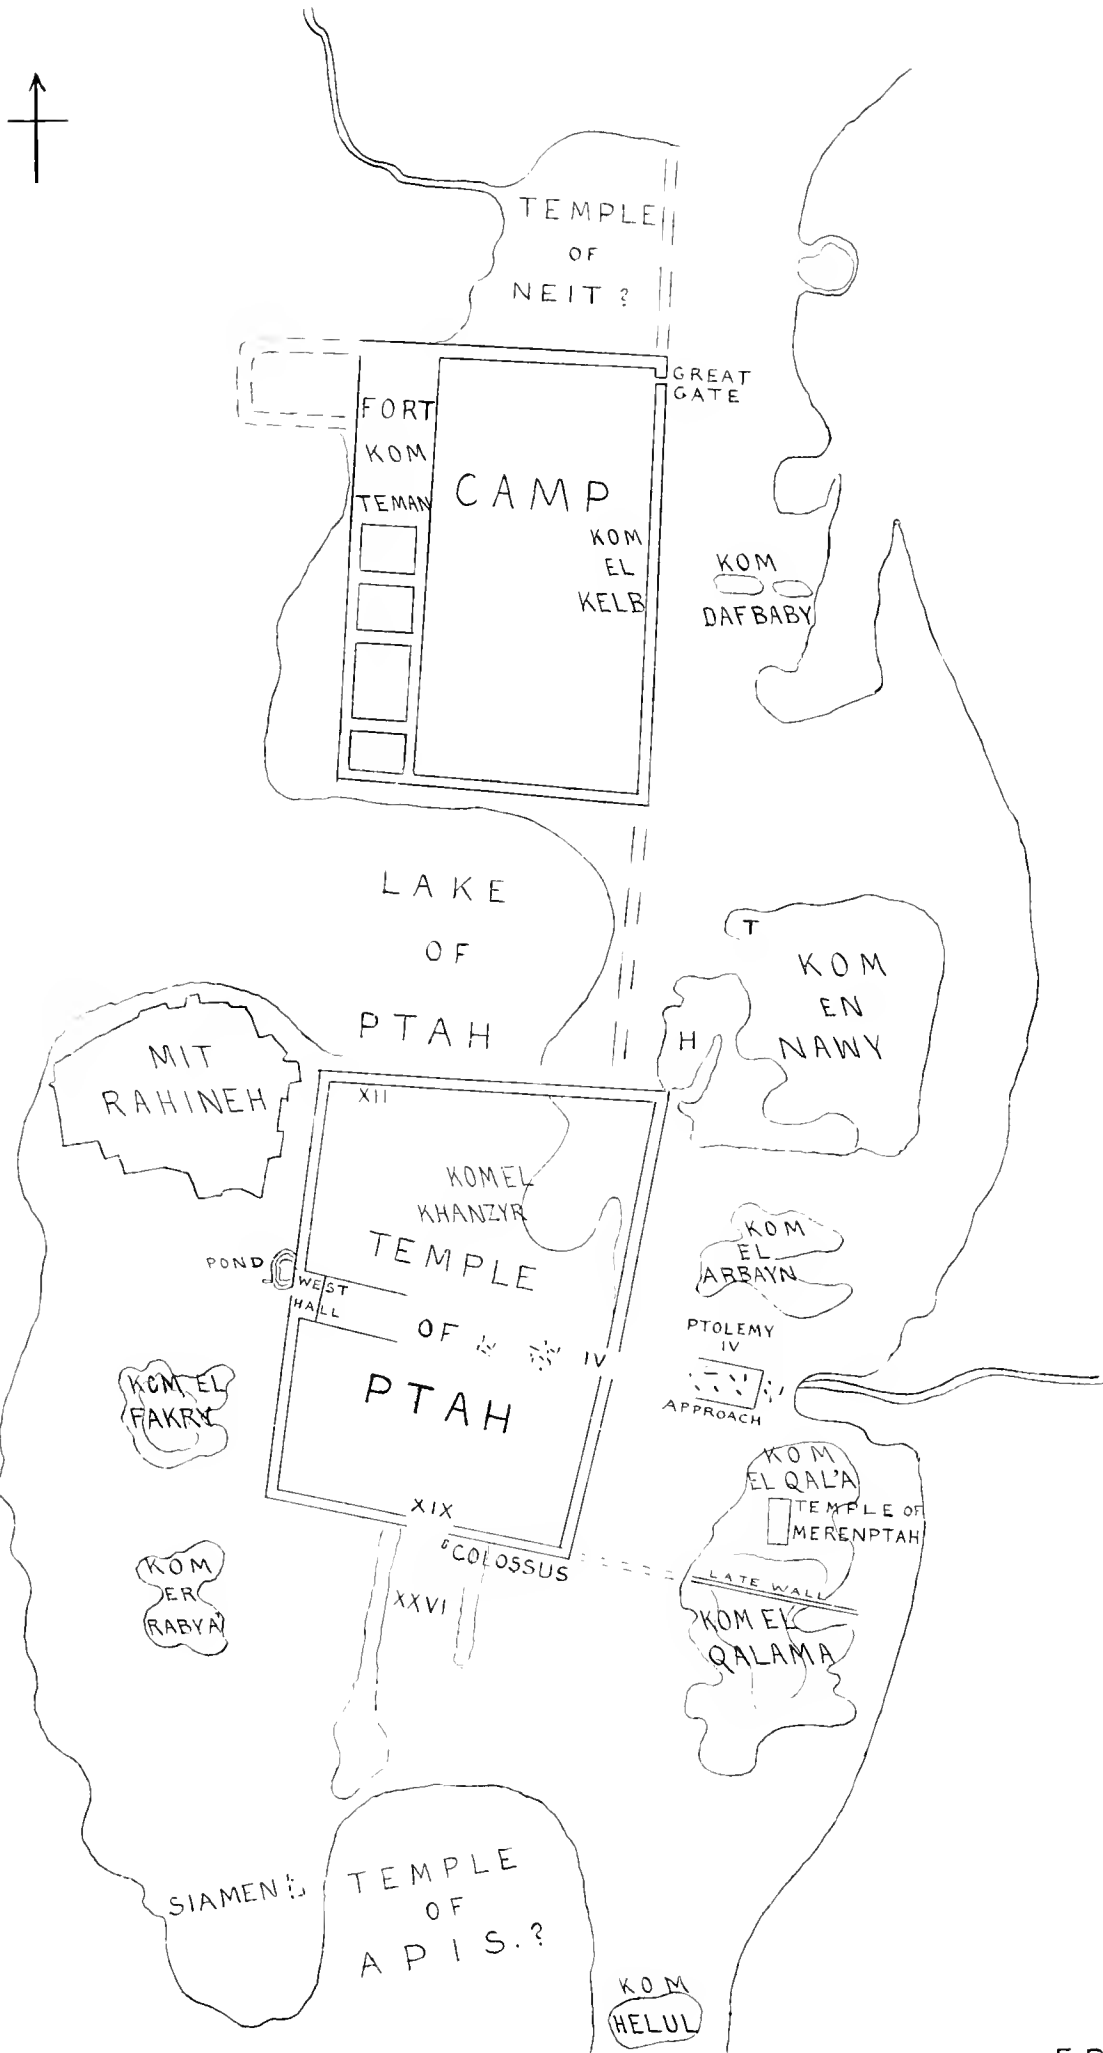 TEMPLE
OF
NEIT ?
GREAT
GATE
FORT
KOM
TEMAN
CAMP
KOM
EL
KELB
KOM
DAFBABY
LAKE
OF
PTAH
T
KOM
EN
NAWY
H
MIT
RAHINEH
XII
KOM EL
KHANZYR
TEMPLE
OF
PTAH
POND
WEST
HALL
IV
KOM
EL
ARBAYN
PTOLEMY
IV
APPROACH
KOM EL
FAKRY
KOM
EL QAL'A
TEMPLE OF
MERENPTAH
XIX
COLOSSUS
LATE WALL
KOM
ER
RABYA
XXVI
KOM EL
QALAMA
SIAMEN
TEMPLE
OF
APIS.?
KOM
HELUL